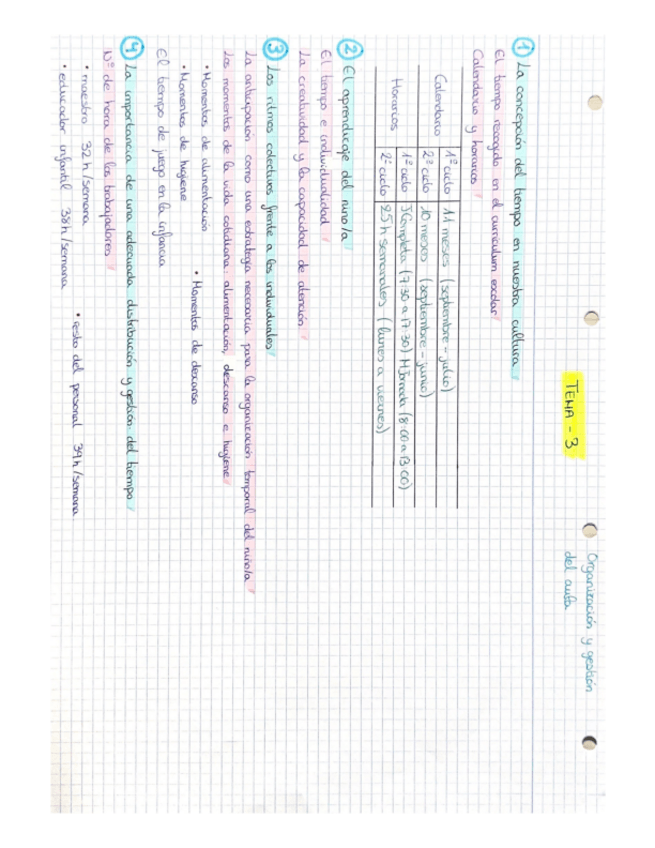 Organización y gestión
del aula
TEMA - 3
① La concepción del tiempo en nuestra cultura
El tiempo recogido en el curriculum escolar
Calendario y horarios
Calendario 1º ciclo 11 meses (septiembre - julio)
2º ciclo 10 meses (septiembre - junio)
Horarios 1º ciclo J Completa (7:30 a 17:30) M Jornada (8:00 a 13:00)
2º ciclo 25 h semanales (lunes a viernes)
② El aprendizaje del niño/a
El tiempo e individualidad
La creatividad y la capacidad de atención
③ Los ritmos colectivos frente a los individuales
La anticipación como una estrategia necesaria para la organización temporal del niño/a
Los momentos de la vida cotidiana: alimentación, descanso e higiene
• Momentos de alimentación • Momentos de descanso
• Momentos de higiene
El tiempo de juego en la infancia
④ La importancia de una adecuada distribución y gestión del tiempo
Nº de hora de los trabajadores
• maestro 32 h/semana • resto del personal 39 h/semana
• educador infantil 38 h/semana